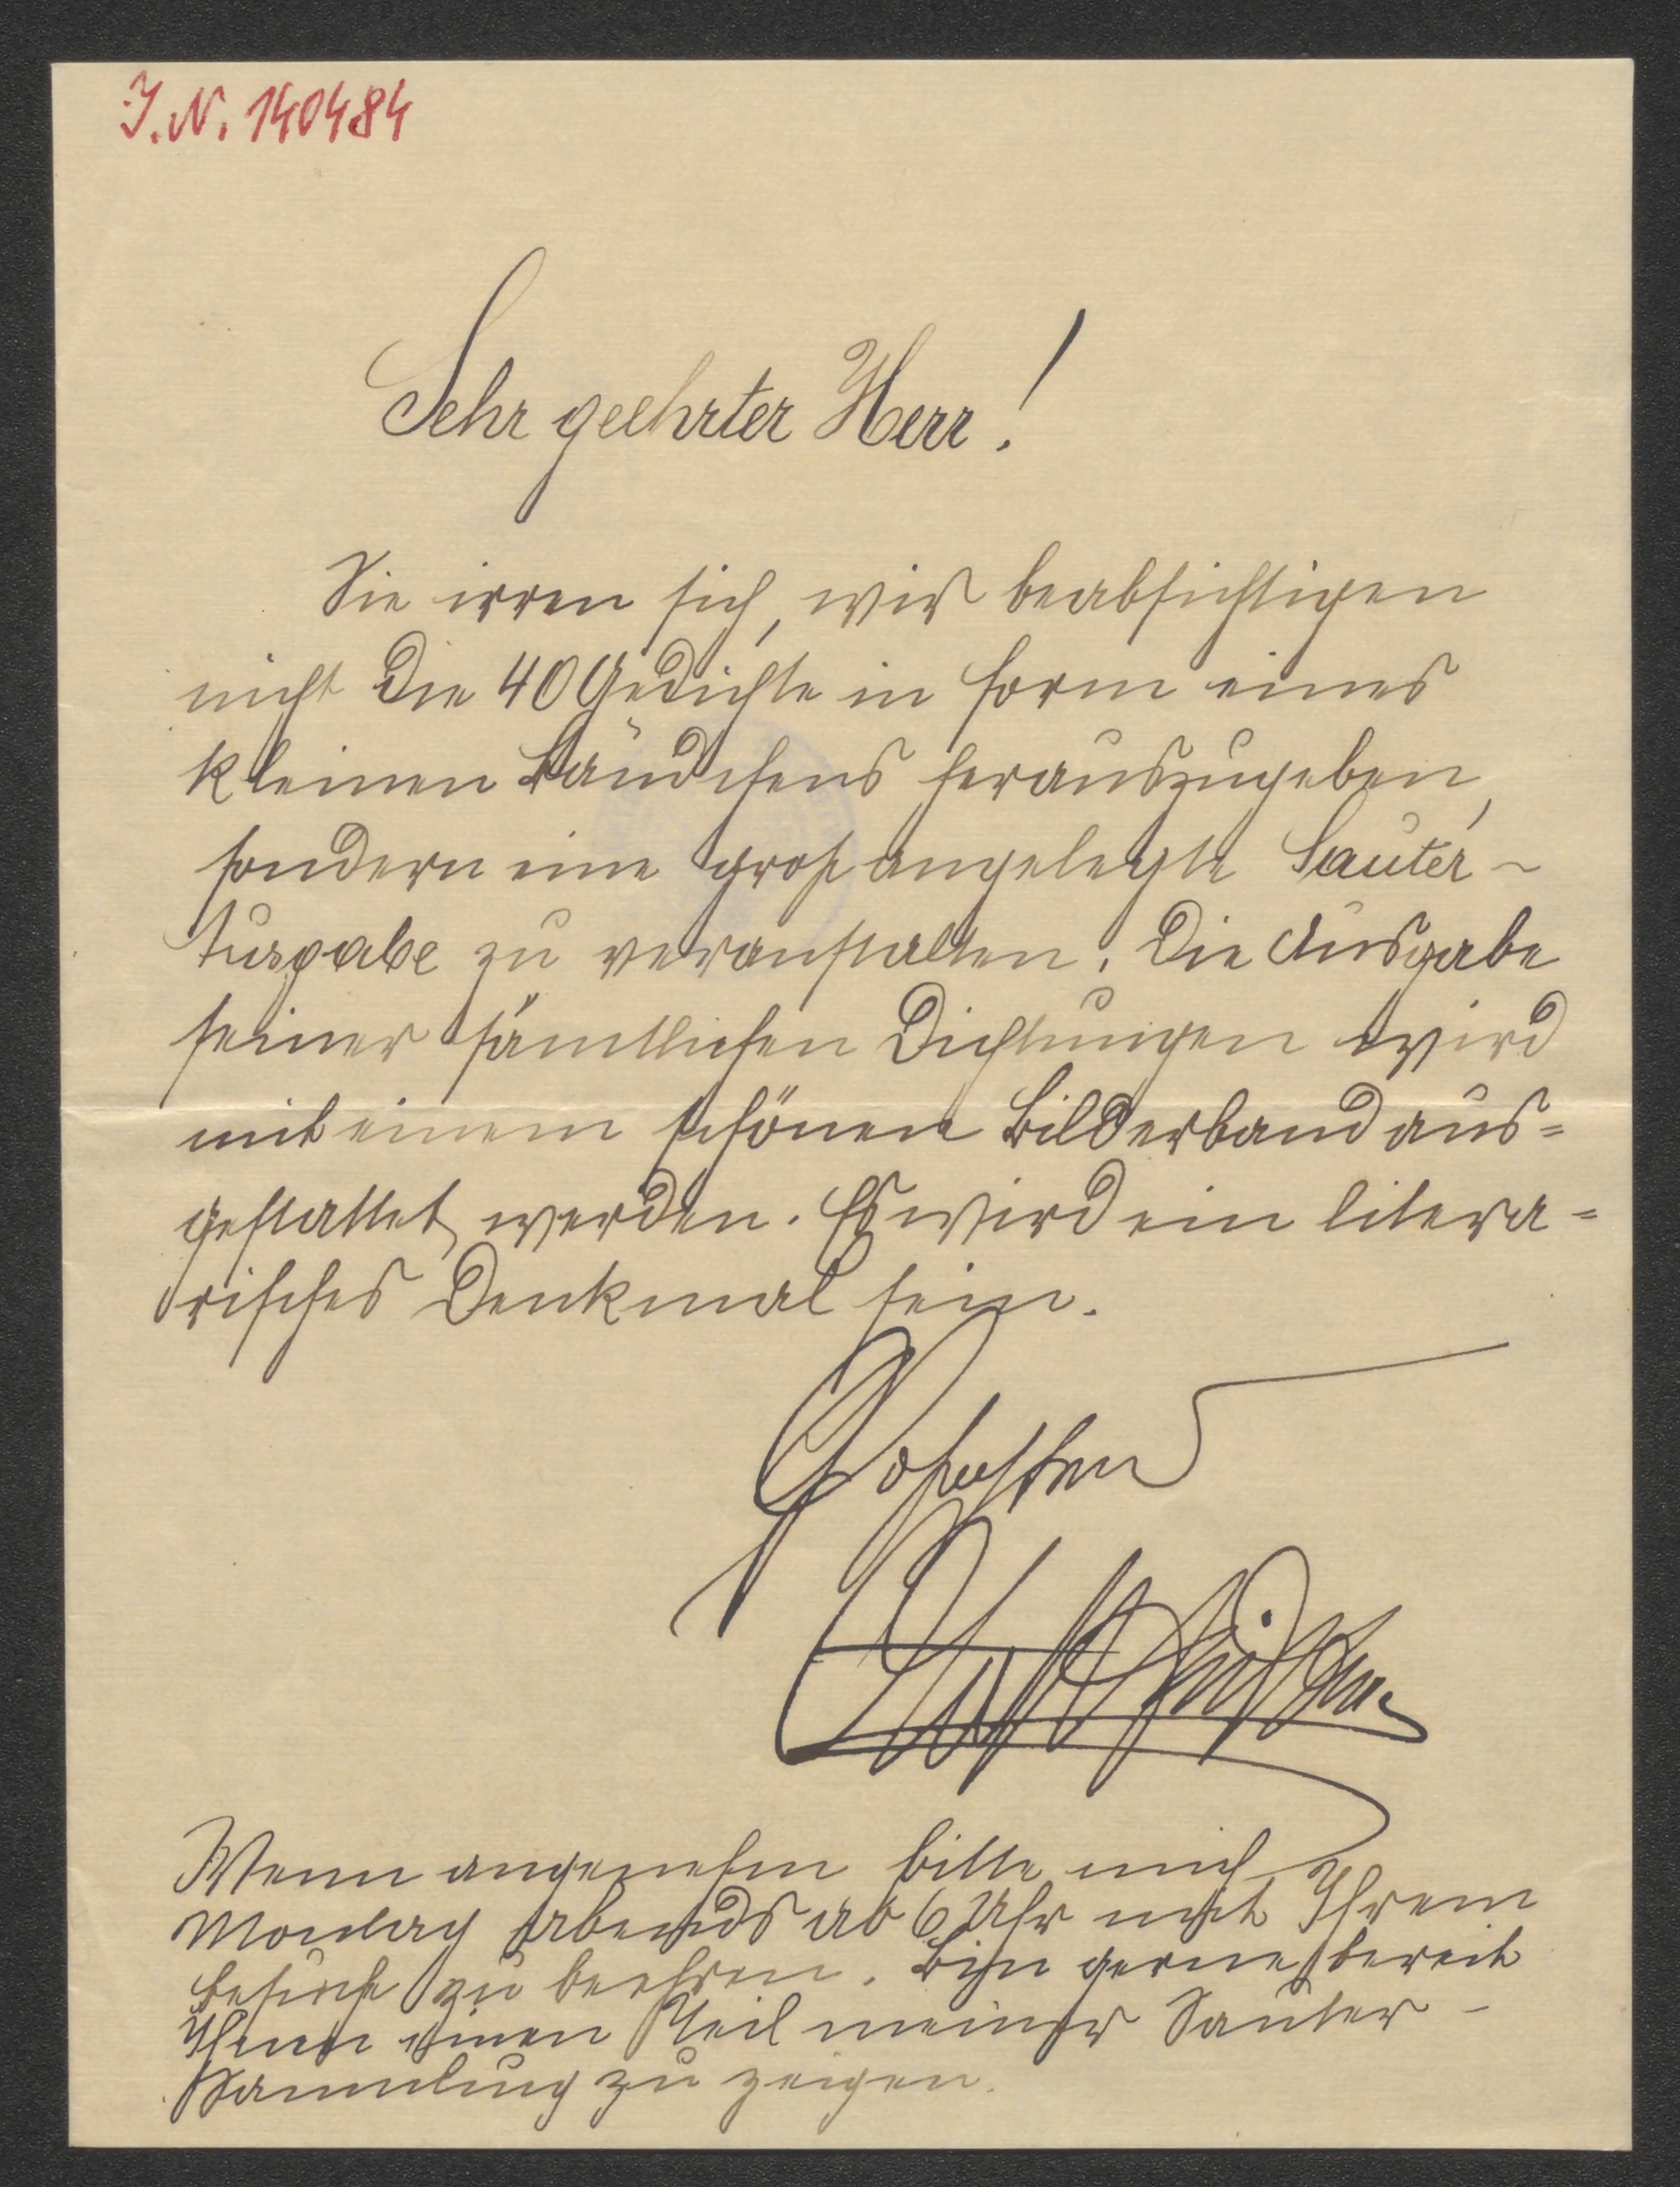 J.N. 140484
Sehr geehrter Herr!
Sie irren sich, wir beabsichtigen
nicht die 40 Gedichte in Form eines
kleinen Bändchens herauszugeben,
sondern eine groß angelegte Sauter-
Ausgabe zu veranstalten. Die Ausgabe
seiner sämtlichen Dichtungen wird
mit einem schönen Bilderband aus=
gestattet werden. Es wird ein litera=
risches Denkmal sein.
Wenn angenehm bitte mich
Montag abends ab 6 Uhr mit Ihrem
Besuche zu beehren. Bin gerne bereit
Ihnen einen Teil meiner Sauter-
Sammlung zu zeigen.